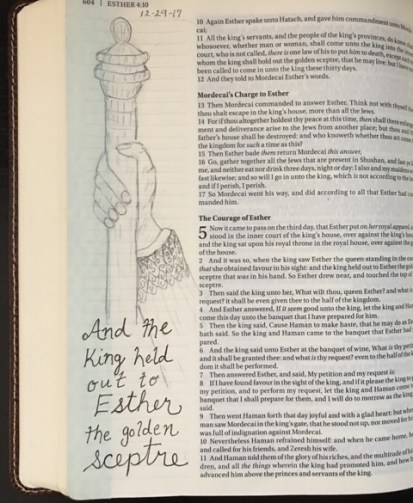 604 | ESTHER 4:10
12-29-17
And the
King held
out to
Esther
the golden
sceptre
10 Again Esther spake unto Hatach, and gave him commandment unto
cai;
11 All the king's servants, and the people of the king's provinces, do know
whosoever, whether man or woman, shall come unto the king into the
court, who is not called, there is one law of his to put him to death, except
whom the king shall hold out the golden sceptre, that he may live: but I have
been called to come in unto the king these thirty days.
12 And they told to Mordecai Esther's words.
Mordecai's Charge to Esther
13 Then Mordecai commanded to answer Esther, Think not with thyself
thou shalt escape in the king's house, more than all the Jews.
14 For if thou altogether holdest thy peace at this time, then shall there
ment and deliverance arise to the Jews from another place; but thou and
father's house shall be destroyed: and who knoweth whether thou art come
the kingdom for such a time as this?
15 Then Esther bade them return Mordecai this answer,
16 Go, gather together all the Jews that are present in Shushan, and fast
me, and neither eat nor drink three days, night or day: I also and my maidens
fast likewise; and so will I go in unto the king, which is not according to the
and if I perish, I perish.
17 So Mordecai went his way, and did according to all that Esther had
manded him.
The Courage of Esther
5 Now it came to pass on the third day, that Esther put on her royal apparel
stood in the inner court of the king's house, over against the king's
and the king sat upon his royal throne in the royal house, over against the
of the house.
2 And it was so, when the king saw Esther the queen standing in the
that she obtained favour in his sight: and the king held out to Esther the
sceptre that was in his hand. So Esther drew near, and touched the top
sceptre.
3 Then said the king unto her, What wilt thou, queen Esther? and what is
request? it shall be even given thee to the half of the kingdom.
4 And Esther answered, If it seem good unto the king, let the king and
come this day unto the banquet that I have prepared for him.
5 Then the king said, Cause Haman to make haste, that he may do as
hath said. So the king and Haman came to the banquet that Esther had
pared.
6 And the king said unto Esther at the banquet of wine, What is thy
and it shall be granted thee: and what is thy request? even to the half of the
dom it shall be performed.
7 Then answered Esther, and said, My petition and my request is;
8 If I have found favour in the sight of the king, and if it please the king
my petition, and to perform my request, let the king and Haman come
banquet that I shall prepare for them, and I will do to morrow as the king
said.
9 Then went Haman forth that day joyful and with a glad heart: but when
man saw Mordecai in the king's gate, that he stood not up, nor moved for
was full of indignation against Mordecai.
10 Nevertheless Haman refrained himself: and when he came home,
and called for his friends, and Zeresh his wife.
11 And Haman told them of the glory of his riches, and the multitude of
dren, and all the things wherein the king had promoted him, and how
advanced him above the princes and servants of the king.